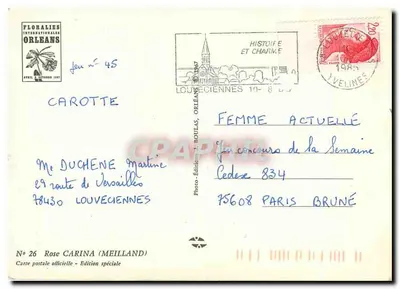 FLORALIES
INTERNATIONALES
ORLEANS
Jeu n° 45
CAROTTE
Me DUCHENE Martine
29 route de Versailles
78430 LOUVECIENNES
N° 26 Rose CARINA (MEILLAND)
Carte postale officielle - Edition spéciale
HISTOIRE
ET CHARME
LOUVECIENNES
YVELINES
2,20
FEMME ACTUELLE
Jeu concours de la Semaine
Cedex 834
75608 PARIS BRUNE